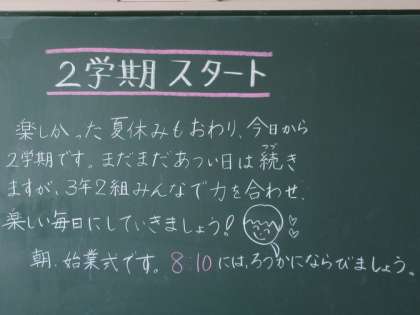 2学期 スタート
楽しかった夏休みもおわり、今日から
2学期です。まだまだあつい日は続き
つづ
ますが、3年2組みんなで力を合わせ、
楽しい毎日にしていきましょう!
朝.始業式です。8:10には、ろうかにならびましょう。